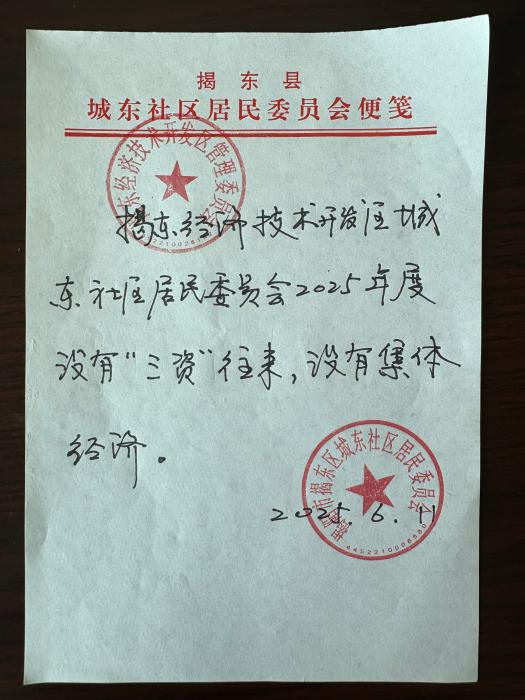 揭东县
城东社区居民委员会便笺
东经济技术开发区管理委员会
揭东经济技术开发区城
东社区居民委员会2025年度
没有“三资”往来，没有集体
经济。
揭阳市揭东区城东社区居民委员会
2025.6.11